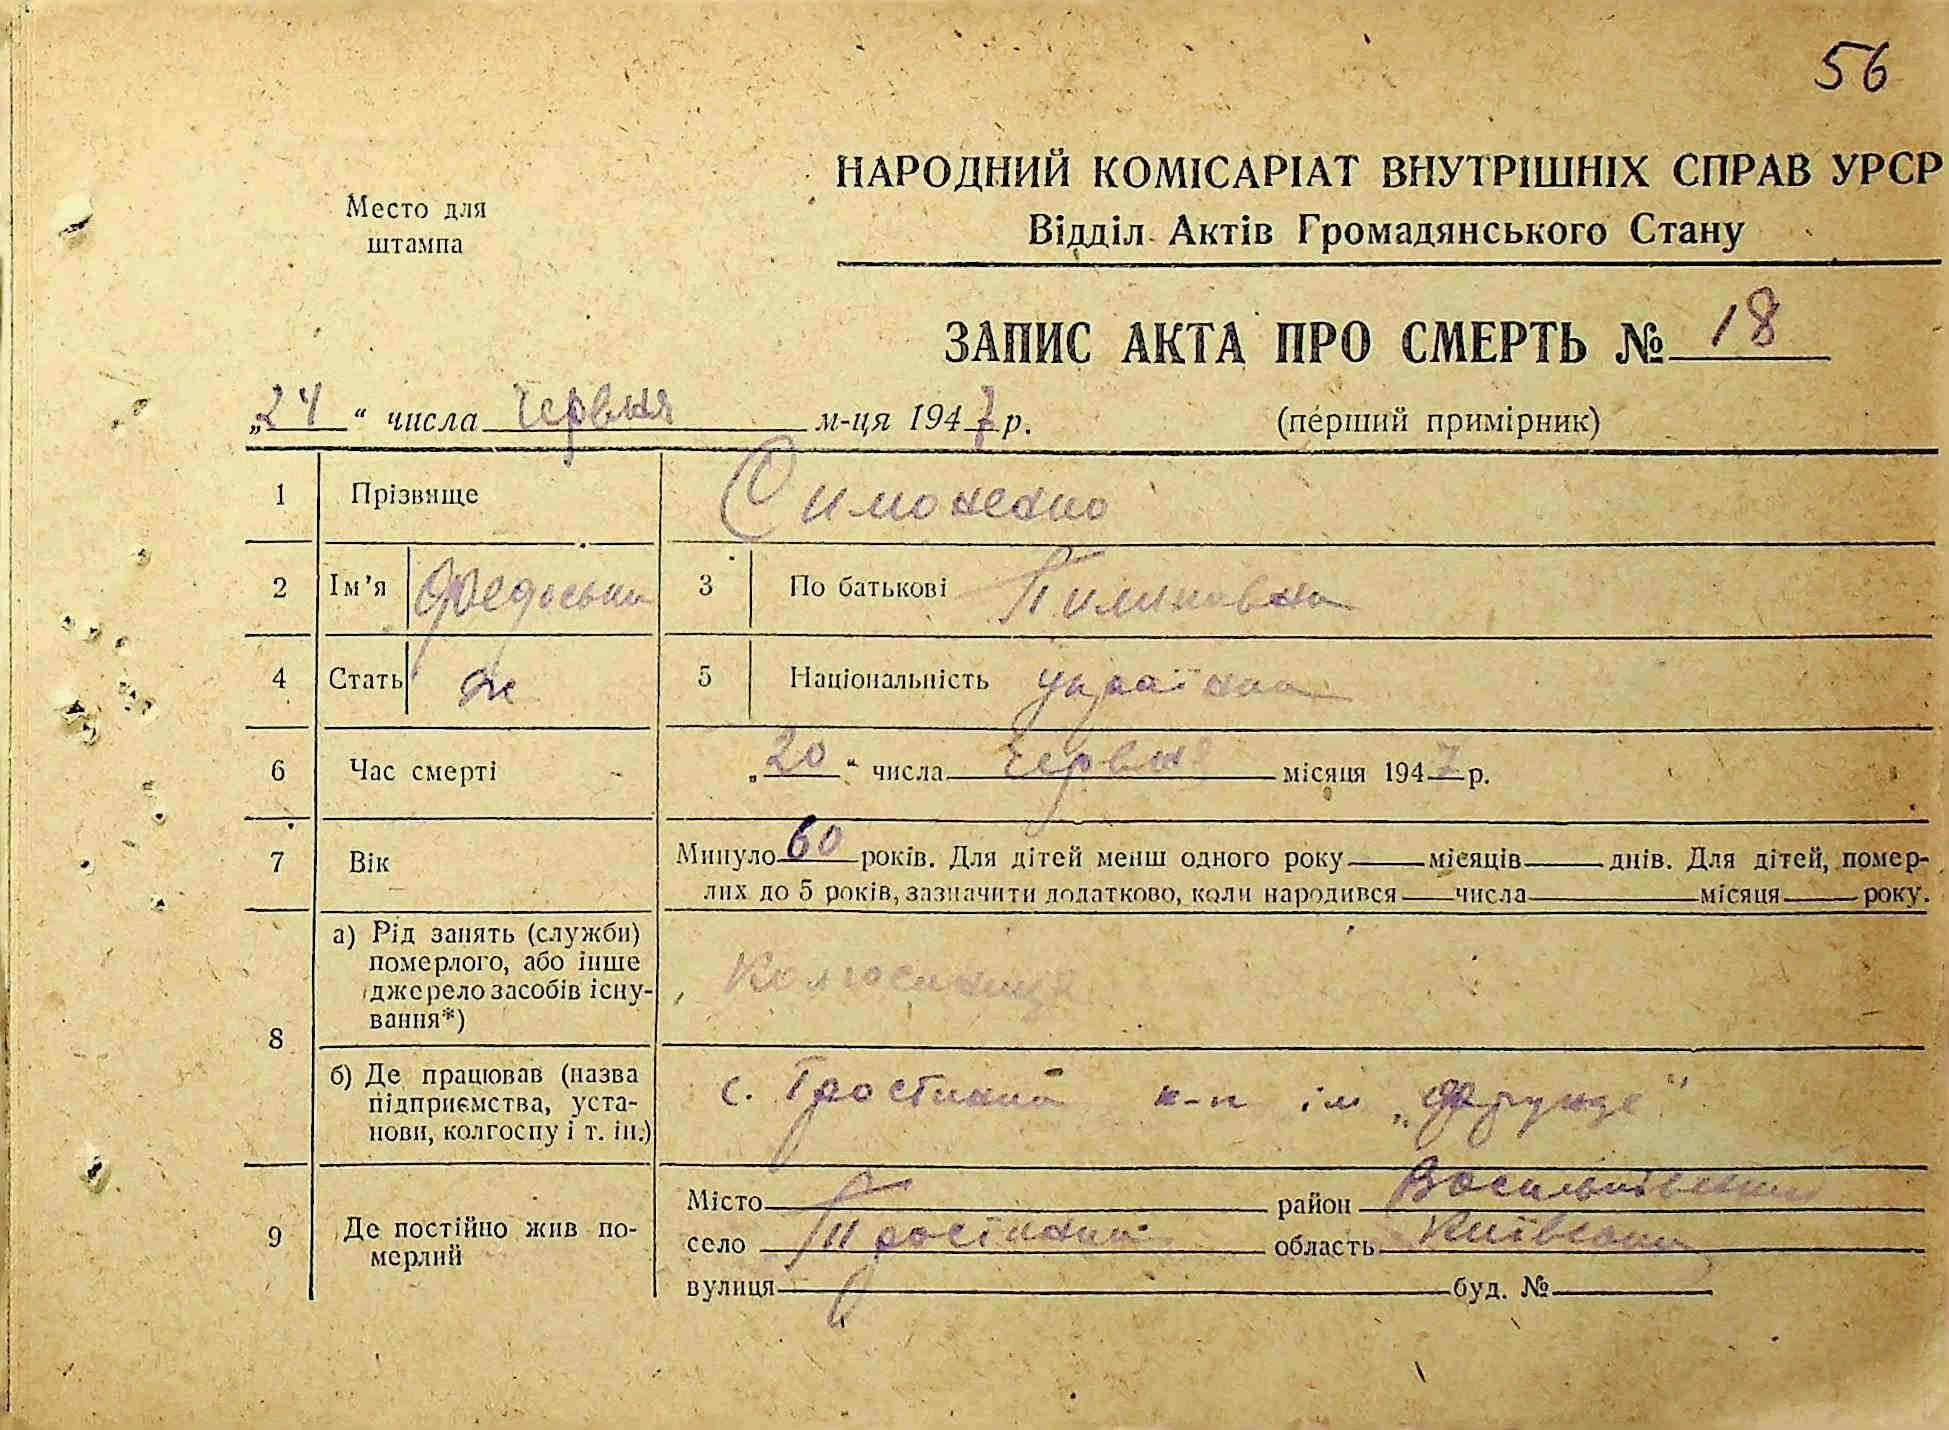 56
НАРОДНИЙ КОМІСАРІАТ ВНУТРІШНІХ СПРАВ УРСР
Место для
штампа
Відділ Актів Громадянського Стану
ЗАПИС АКТА ПРО СМЕРТЬ № 18
„24“ числа червня м-ця 1947 р. (перший примірник)
1 Прізвище Симоненко
2 Ім'я Федоська 3 По батькові Пилиповна
4 Стать ж 5 Національність українка
6 Час смерті „20“ числа червня місяця 1947 р.
7 Вік Минуло 60 років. Для дітей менш одного року місяців днів. Для дітей, помер-
лих до 5 років, зазначити додатково, коли народився числа місяця року.
8 а) Рід занять (служби)
померлого, або інше
джерело засобів існу-
вання*) Колгоспниця
б) Де працював (назва
підприємства, уста-
нови, колгоспу і т. ін.) с. Тростинка к-п ім „Фрунзе"
9 Де постійно жив по-
мерлий
Місто район Васильківський
село Тростинка область Київська
вулиця буд. №